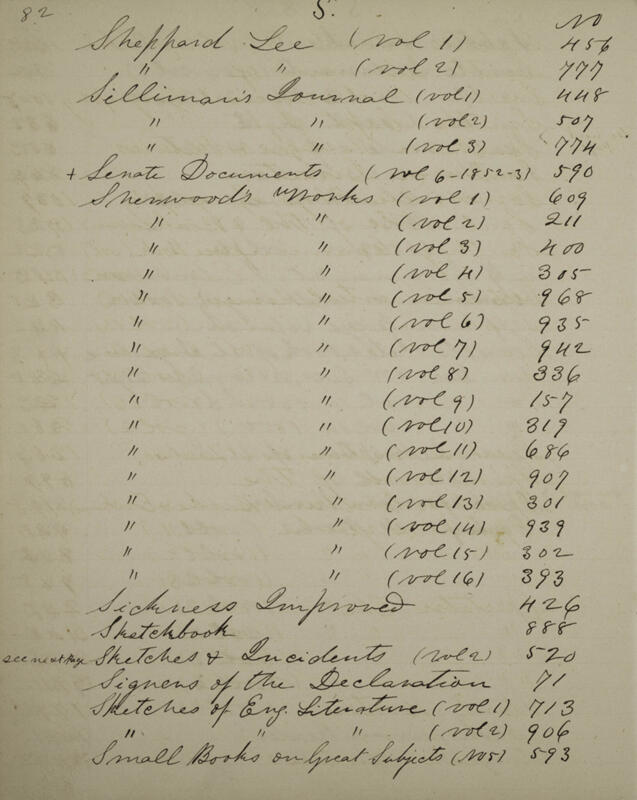 82 S. No
Sheppard Lee (vol 1) 456
" " (vol 2) 777
Silliman's Journal (vol 1) 448
" " (vol 2) 507
" " (vol 3) 774
+ Senate Documents (vol 6-1852-3) 590
Sherwood's Works (vol 1) 609
" " (vol 2) 211
" " (vol 3) 400
" " (vol 4) 305
" " (vol 5) 968
" " (vol 6) 935
" " (vol 7) 942
" " (vol 8) 336
" " (vol 9) 157
" " (vol 10) 319
" " (vol 11) 686
" " (vol 12) 907
" " (vol 13) 301
" " (vol 14) 939
" " (vol 15) 302
" " (vol 16) 393
Sickness Improved 426
Sketchbook 888
see next Page Sketches & Incidents (vol 2) 520
Signers of the Declaration 71
Sketches of Eng. Literature (vol 1) 713
" " " (vol 2) 906
Small Books on Great Subjects (No 5) 593